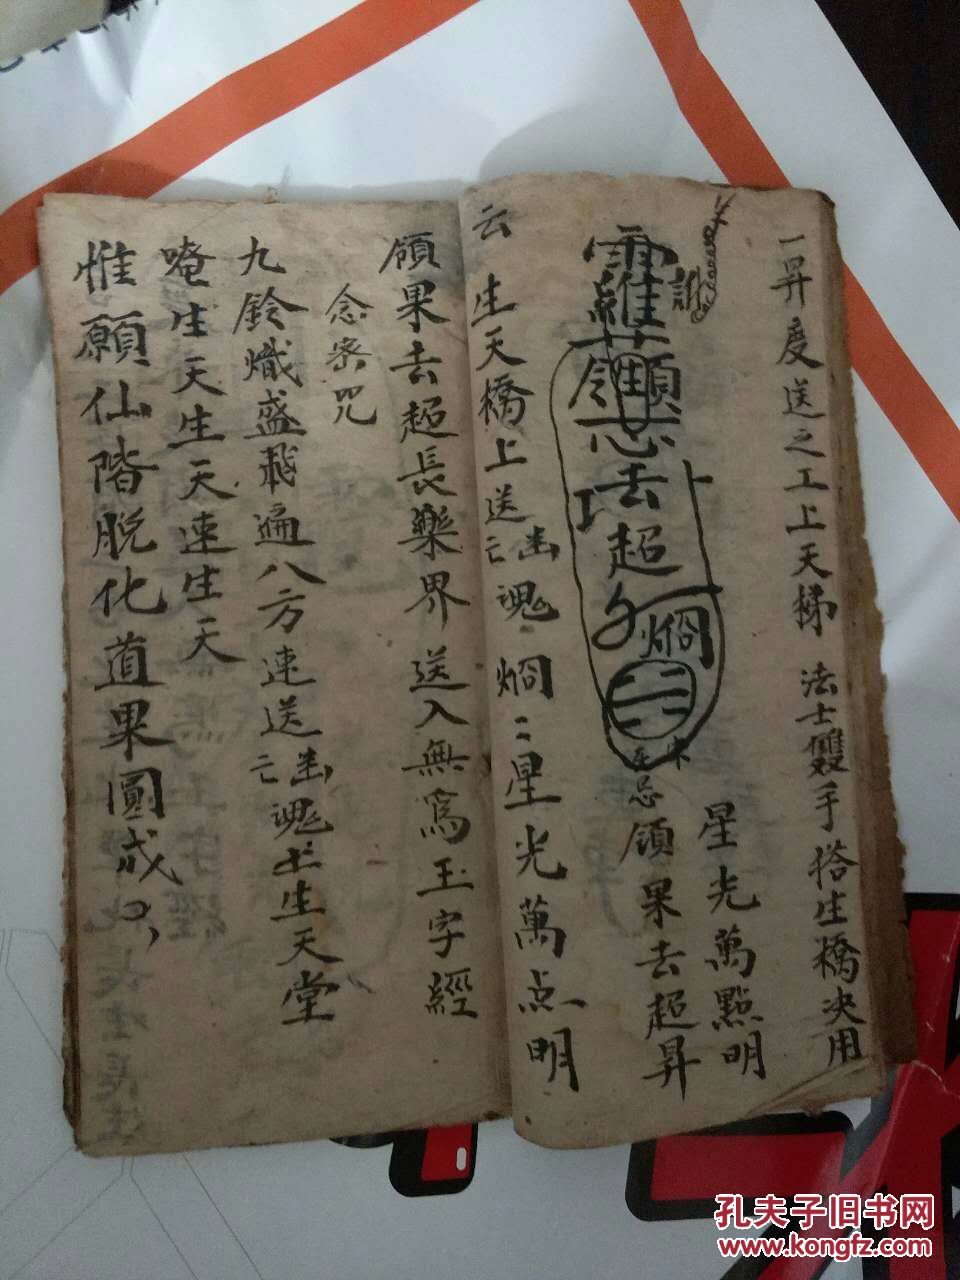 一昇度送之工上天梯 法士雙手搭生橋决用
星光萬點明
領果去超昇
去超
云 生天橋上送亡魂 炯二星光萬点明
領果去超長樂界送入無寫玉字經
念宻咒
九鈴熾盛飛遍八方速送亡魂去生天堂
唵生天生天速生天
惟願仙階脱化道果圓成
孔夫子旧书网
www.kongfz.com